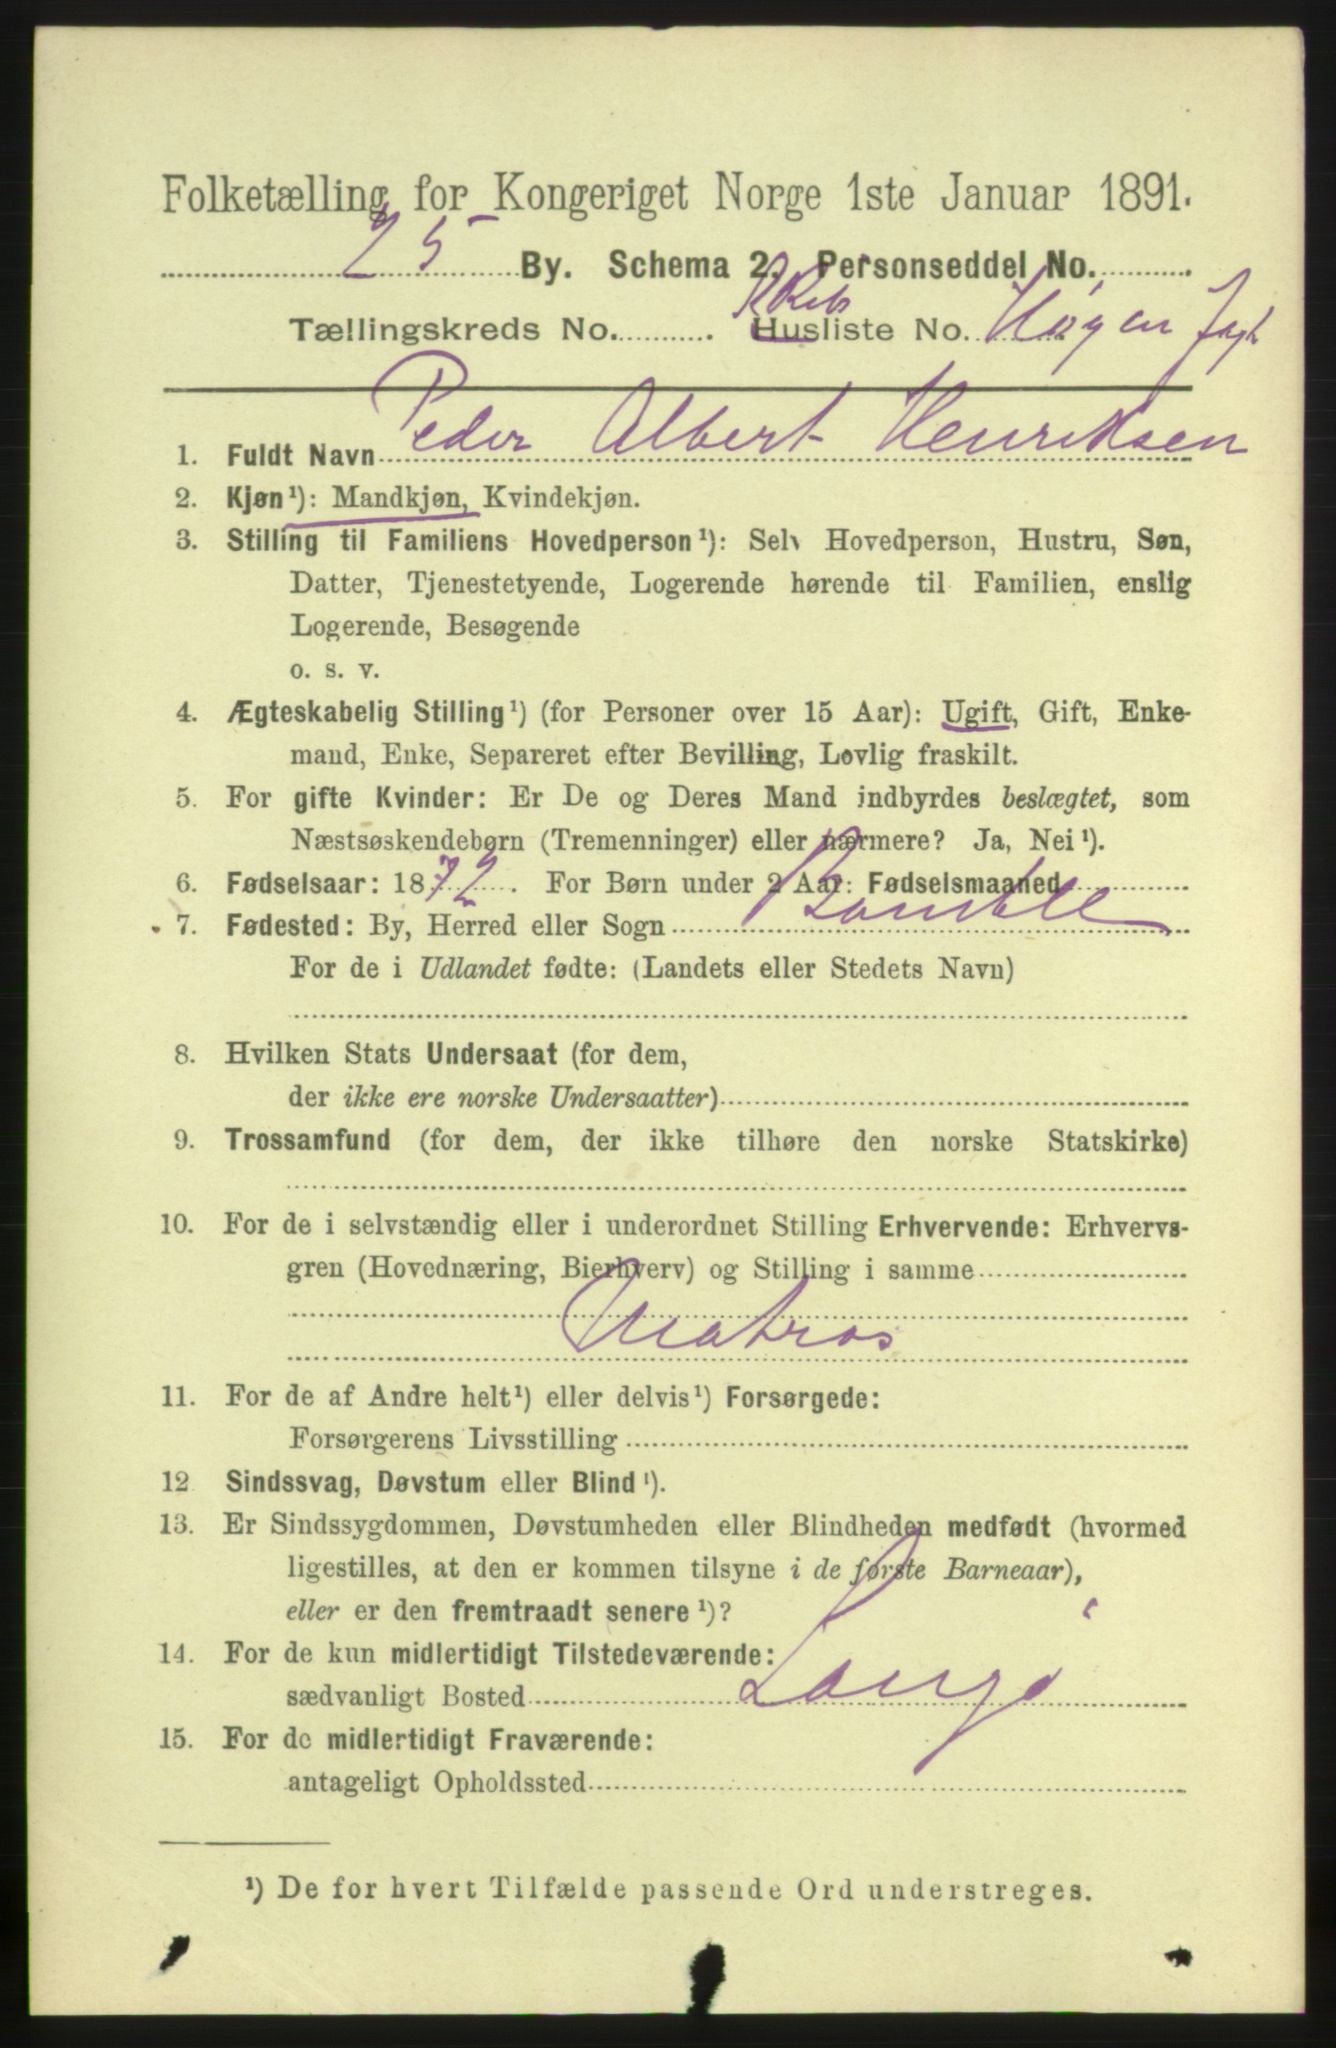 Folketælling for Kongeriget Norge 1ste Januar 1891.
25 By. Schema 2. Personseddel No.
Tællingskreds No. Husliste No. Jagt
1. Fuldt Navn Peder Albert Henriksen
2. Kjøn¹): Mandkjøn, Kvindekjøn.
3. Stilling til Familiens Hovedperson¹): Selv Hovedperson, Hustru, Søn,
Datter, Tjenestetyende, Logerende hørende til Familien, enslig
Logerende, Besøgende
o. s. v.
4. Ægteskabelig Stilling¹) (for Personer over 15 Aar): Ugift, Gift, Enke-
mand, Enke, Separeret efter Bevilling, Lovlig fraskilt.
5. For gifte Kvinder: Er De og Deres Mand indbyrdes beslægtet, som
Næstsøskendebørn (Tremenninger) eller nærmere? Ja, Nei¹).
6. Fødselsaar: 1872. For Børn under 2 Aar: Fødselsmaaned
7. Fødested: By, Herred eller Sogn Bamble
For de i Udlandet fødte: (Landets eller Stedets Navn)
8. Hvilken Stats Undersaat (for dem,
der ikke ere norske Undersaatter)
9. Trossamfund (for dem, der ikke tilhøre den norske Statskirke)
10. For de i selvstændig eller i underordnet Stilling Erhvervende: Erhvervs-
gren (Hovednæring, Bierhverv) og Stilling i samme
Matros
11. For de af Andre helt¹) eller delvis¹) Forsørgede:
Forsørgerens Livsstilling
12 Sindssvag, Døvstum eller Blind¹).
13. Er Sindssygdommen, Døvstumheden eller Blindheden medfødt (hvormed
ligestilles, at den er kommen tilsyne i de første Barneaar),
eller er den fremtraadt senere¹)?
14. For de kun midlertidigt Tilstedeværende:
sædvanligt Bosted
15. For de midlertidigt Fraværende:
antageligt Opholdssted
¹) De for hvert Tilfælde passende Ord understreges.